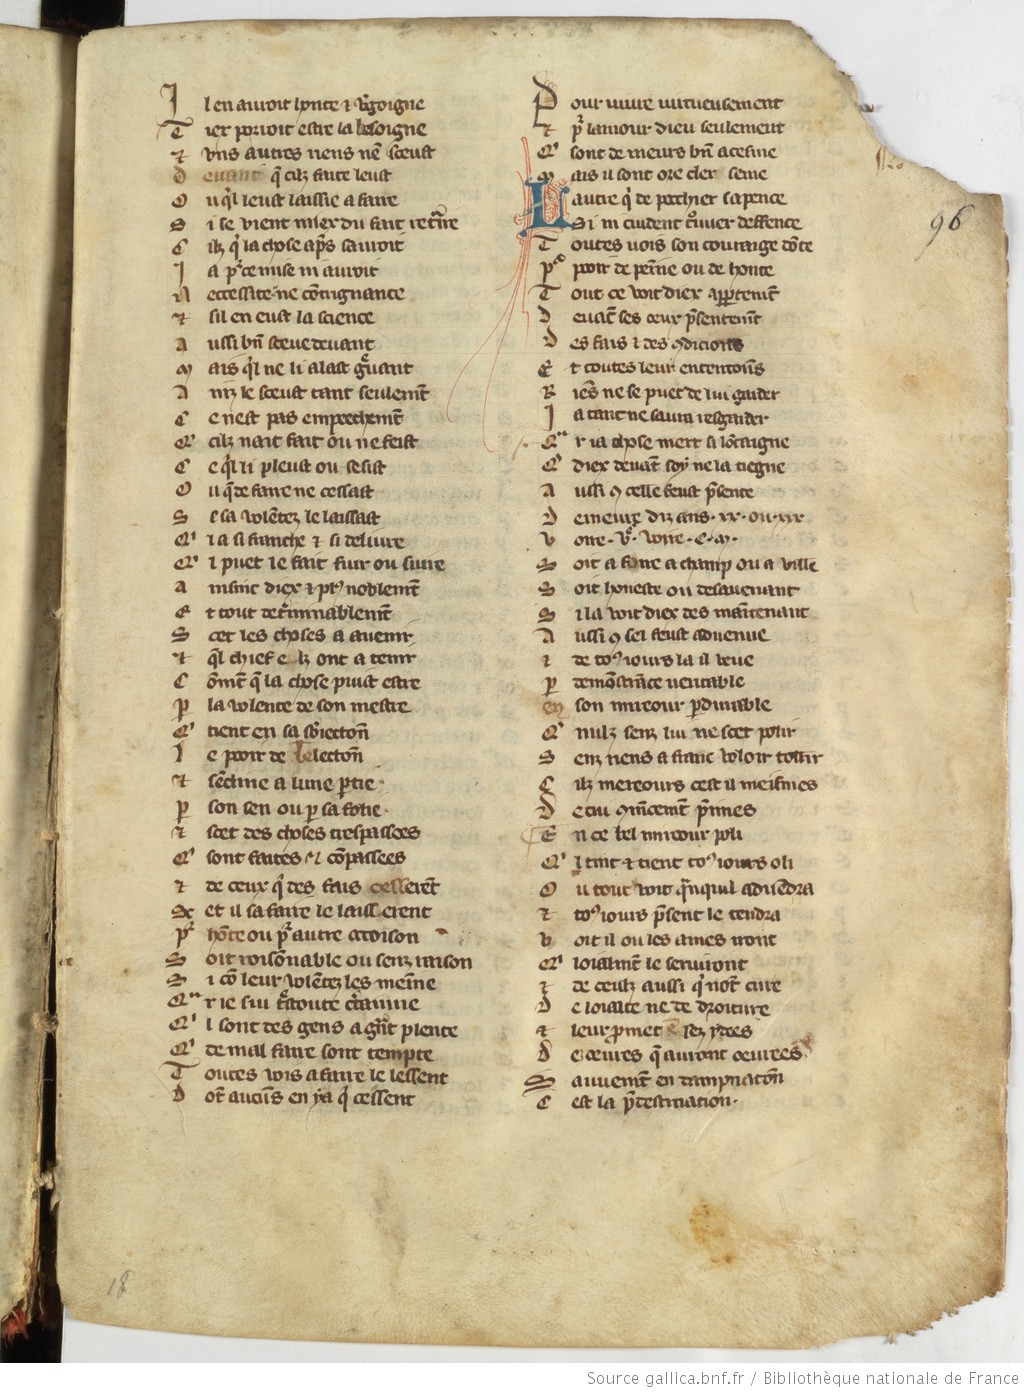 Il en auroit honte & v̾goigne
Tiex porroit estre la besoigne
⁊ vns autres riens nẽ sceust
Deuant q̃ cilz faite leust
Ou q̾l leust laissie a faire
Si se vient miex du fait ret̾re
Cilz q̾ la chose ap̃s sauroit
Ia p̾ ce mise ni auroit
Neccessite ne cõtrignance
⁊ sil en eust la science
Aussi bñ sceue deuant
Mais q̾l ne li alast g̃uant
Aniz le sceust tant seulem̃t
Ce nest pas empeechem̃t
Q̾ cilz nait fait ou ne feist
Ce q̾l li pleust ou sesist
Ou q̃ de faire ne cessast
Se sa volentez le laissast
Q̾ l a si franche ⁊ si deliure
Q̾ l puet le fait fuir ou suire
Ainsint diex & plꝰ noblem̃t
Et tout det̾minablem̃t
Scet les choses a auenir
⁊ q̾l chief elz ont a tenir
Cõm̃t q̃ la chose puist estre
ꝑ la volente de son mestre
Q̾ tient en sa sb̾iectõn
Le pooir de lelectõn
⁊ sẽcline a lune ꝑtie
ꝑ son sen ou ꝑ sa folie
⁊ scet des choses trespassees
Q̾ sont faites & cõpassees
⁊ de ceux q̾ des fais cesserẽt
Scet il sa faire le laisserent
p̾ hõte ou p̾ autre accoison
Soit roisõnable ou senz raison
Si cõ leur volẽtez les meine
Q̾r ie sui t̾stoute c̾taine
Q̾l sont des gens a g̃nt plente
Q̾ de mal faire sont tempte
Toutes uois a faire le lessent
Dõt aucũs en ya q̾ cessent
Pour uiure uirtueusement
⁊ p̾ lamour dieu seulement
Q̾ sont de meurs bñ acesme
Mais il sont ore cler seme
Lautre q̾ de pechier sapence
Si ni cuident t̾uuer deffence
Toutes uois son courage dõte
p̾ pooir de peĩne ou de honte
Tout ce voit diex appertem̃t
Deuãt ses oeux p̃sentem̃t
Des fais & des 9dicions
Et toutes leur ententõns
Riẽs ne se puet de lui garder
Ia tant ne saura resgarder
Q̾r ia chose niert si loĩtaigne
Q̾ diex deuãt soy ne la tiegne
Aussi 9 celle feust p̃sente
Demeure diz ans .xx. ou .xxx
Voire .vͨ. voire .c. m̃.
Soit a foire a champ ou a ville
Soit honeste ou desauenant
Si la voit diex des maintenant
Aussi 9 sel feust aduenue
⁊ de toꝰ iours la il veue
ꝑ demõstrãce ueritable
en son mireour ꝑdurable
Q̾ nulz senz lui ne scet polir
Senz riens a franc voloir tollir
Cilz mereours cest il meismes
De cui 9mencem̃t p̃nimes
En ce bel mireour poli
Q̾ l tint ⁊ tient toꝰ iours o li
Ou tout voit q̃nquil aduẽdra
⁊ toꝰ iours p̃sent le tendra
Voit il ou les ames iront
Q̾ loialm̃t le seruiront
⁊ de ceulz aussi q̾ nõt cure
De loialte ne de droiture
⁊ leur ꝓmet
De oeures q̃ auront oeurees
Sauuem̃t en dampnatõn
Cest la p̃destination.
96
18
Source gallica.bnf.fr / Bibliothèque nationale de France